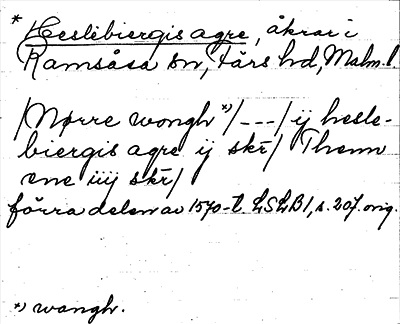 * Heslebiergis agre, åkrar i
Ramsåsa sn, Färs hd, Malm. l.
/Nørre wongh *)/---/ ij hesle-
biergis agre ij skr/ Thenn
ene iiij skr/
förra delen av 1570-t. LSLB1, s. 207. orig.
*) wangh.